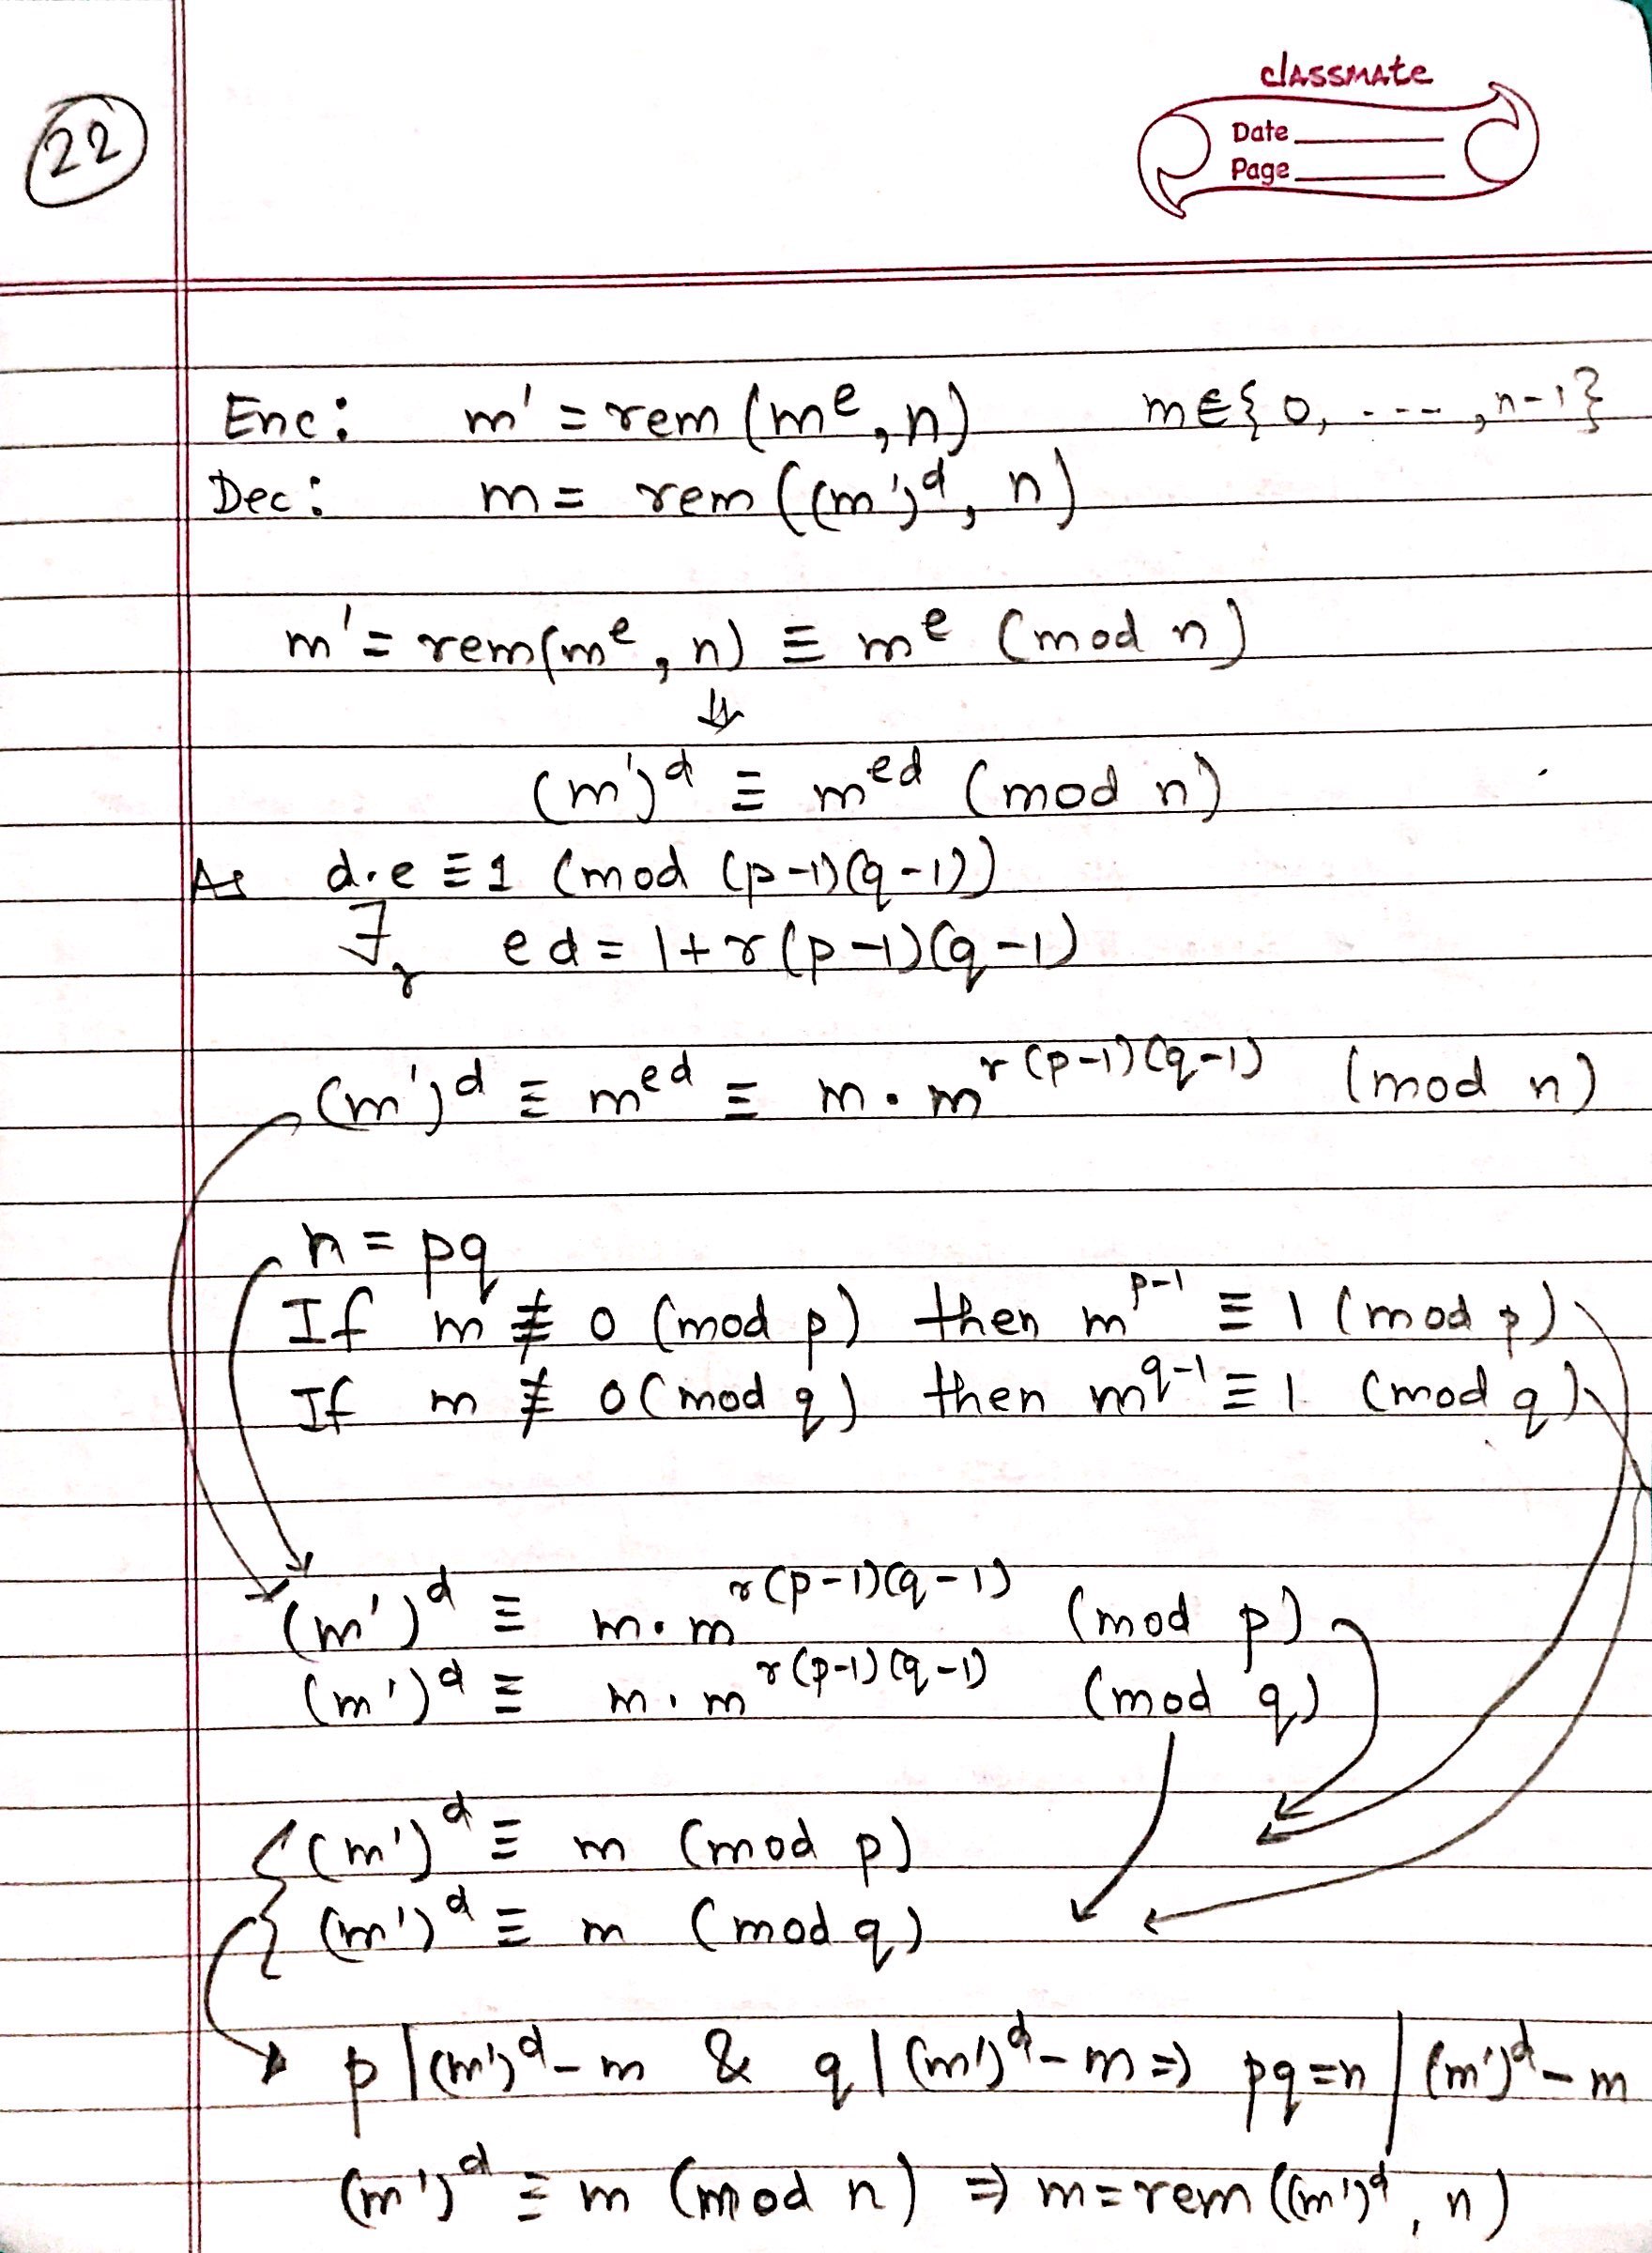 22
classmate
Date
Page
Enc: m' = rem (m^e, n) m∈{0, ----, n-1}
Dec: m = rem ((m')^d, n)
m' = rem(m^e, n) ≡ m^e (mod n)
⇓
(m')^d ≡ m^ed (mod n)
As d.e ≡ 1 (mod (p-1)(q-1))
∃r ed = 1+r(p-1)(q-1)
(m')^d ≡ m^ed ≡ m.m^r(p-1)(q-1) (mod n)
n = pq
If m ≢ 0 (mod p) then m^p-1 ≡ 1 (mod p)
If m ≢ 0 (mod q) then m^q-1 ≡ 1 (mod q)
(m')^d ≡ m.m^r(p-1)(q-1) (mod p)
(m')^d ≡ m.m^r(p-1)(q-1) (mod q)
{(m')^d ≡ m (mod p)
(m')^d ≡ m (mod q)
p | (m')^d - m & q | (m')^d - m ⇒ pq = n | (m')^d - m
(m')^d ≡ m (mod n) ⇒ m = rem ((m')^d, n)